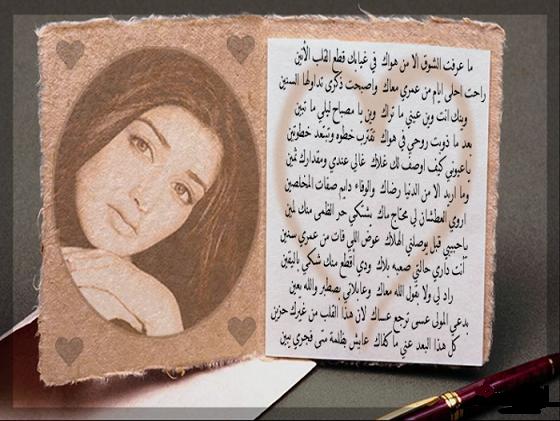 ما عرفت الشوق الا من هواك في غيابك قطع القلب الأنين
راحت احلى ايام من عمري معاك واصبحت ذكرى تداولها السنين
وينك انت وين عيني ما تراك وين يا مصباح ليلي ما تبين
بعد ما ذوبت روحي في هواك تقرب خطوه وتبعد خطوتين
ياعيوني كيف اوصف لك غلاك غالي عندي ومقدارك ثمين
وما اريد الا من الدنيا رضاك والوفاء دايم صفات المخلصين
اروي العطشان لي محتاج ماك يشتكي حر الظمى منك لمين
ياحبيبي قبل يوصلني الهلاك عوض اللي فات من عمري سنين
أنت داري حالتي صعبه بلاك ودي اقطع منك شكي باليقين
راد لي ولا يقول الله معاك وعابلاتي بصطبر والله يعين
بدعي المولى عسى ترجع عساك لان هذا القلب من غيرك حزين
كل هذا البعد عني ما كفاك عايش بظلمة متى فجري يبين